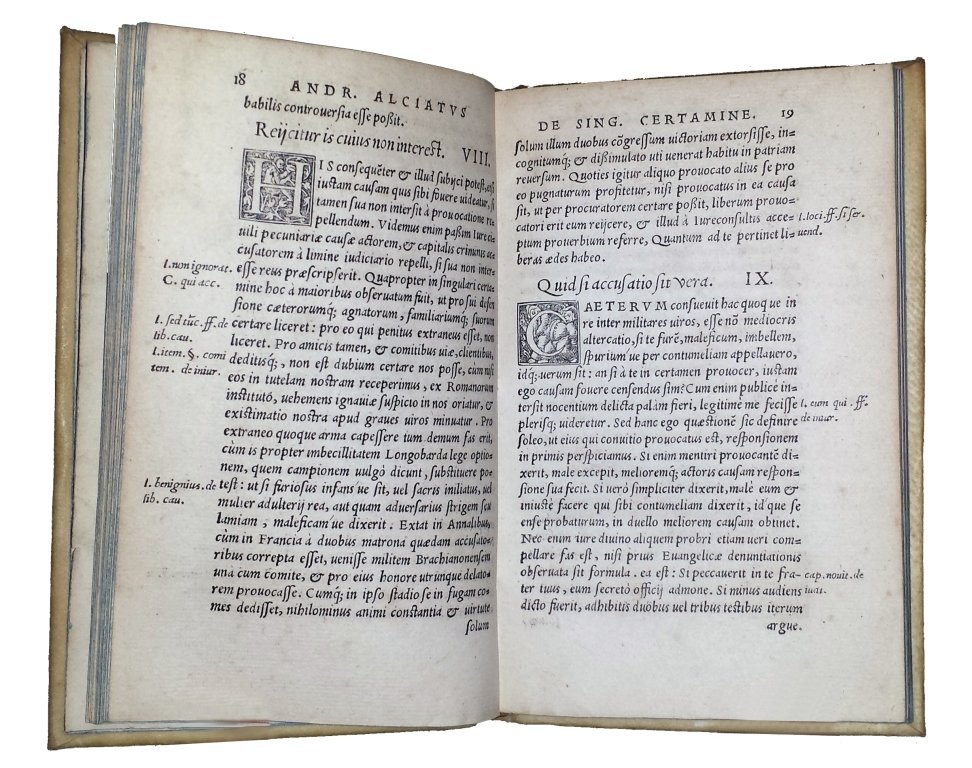 18
ANDR. ALCIATVS
babilis controuersia esse poßit.
Reijcitur is cuius non interest. VIII.
HIS consequẽter & illud subijci potest, etsi
iustam causam quis sibi fouere uideatur, si
tamen sua non intersit à prouocatione re-
pellendum. Videmus enim paßim Iure ci-
uili pecuniariæ causæ actorem, & capitalis criminis ac-
cusatorem à limine iudiciario repelli, si sua non inter-
esse reus præscripserit. Quapropter in singulari certa-
l. non ignorat.
C. qui acc.
mine hoc à maioribus obseruatum fuit, ut pro sui defen
sione cæterorumq; agnatorum, familiariumq; suorum
certare liceret: pro eo qui penitus extraneus esset, non
l. sed tũc. ff. de
lib. cau.
liceret. Pro amicis tamen, & comitibus uiæ, clientibus,
dedititisq;, non est dubium certare nos posse, cum nisi
l. item. §. comi
tem. de iniur.
eos in tutelam nostram receperimus, ex Romanorum
instituto, uehemens ignauiæ suspicio in nos oriatur, &
existimatio nostra apud graues uiros minuatur. Pro
extraneo quoque arma capessere tum demum fas erit,
cùm is propter imbecillitatem Longobarda lege optio-
nem, quem campionem uulgò dicunt, substituere po-
test: ut si furiosus infans'ue sit, uel sacris initiatus, uel
l. benignius. de
lib. cau.
mulier adulterij rea, aut quam aduersarius strigem seu
lamiam, maleficam'ue dixerit. Extat in Annalibus,
cùm in Francia à duobus matrona quædam accusato-
ribus correpta esset, uenisse militem Brachianonensem
una cum comite, & pro eius honore utrunque delato-
rem prouocasse. Cumq; in ipso stadio se in fugam co-
mes dedisset, nihilominus animi constantia & uirtute
solum
DE SING. CERTAMINE. 19
solum illum duobus cõgressum uictoriam extorsisse, in-
cognitumq; & dißimulato uti uenerat habitu in patriam
reuersum. Quoties igitur aliquo prouocato alius se pro
eo pugnaturum profitetur, nisi prouocatus in ea causa
sit, ut per procuratorem certare poßit, liberum prouo-
catori erit eum reijcere, & illud à Iureconsultis acce-
l. loci. ff. si ser.
uend.
ptum prouerbium referre, Quantum ad te pertinet li-
beras ædes habeo.
Quid si accusatio sit uera. IX.
CAETERVM consueuit hac quoque in
re inter militares uiros, esse nõ mediocris
altercatio, si te furẽ, maleficum, imbellem,
spurium'ue per contumeliam appellauero,
idq; uerum sit: an si à te in certamen prouocer, iustam
ego causam fouere censendus sim? Cum enim publicè in-
tersit nocentium delicta palàm fieri, legitimè me fecisse
l. eum qui. ff.
de iniur.
plerisq; uideretur. Sed hanc ego quæstionẽ sic definire
soleo, ut eius qui conuitio prouocatus est, responsionem
in primis perspiciamus. Si enim mentiri prouocantẽ di-
xerit, male excepit, melioremq; actoris causam respon-
sione sua fecit. Si uerò simpliciter dixerit, malè eum &
iniustè facere qui sibi contumeliam dixerit, id que se
ense probaturum, in duello meliorem causam obtinet.
Nec enim iure diuino aliquem probri etiam ueri com-
pellare fas est, nisi prius Euangelicæ denuntiationis
obseruata sit formula. ea est: Si peccauerit in te fra-
cap. nouit. de
iudi.
ter tuus, eum secretò officij admone. Si minus audiens
dicto fuerit, adhibitis duobus uel tribus testibus iterum
argue.